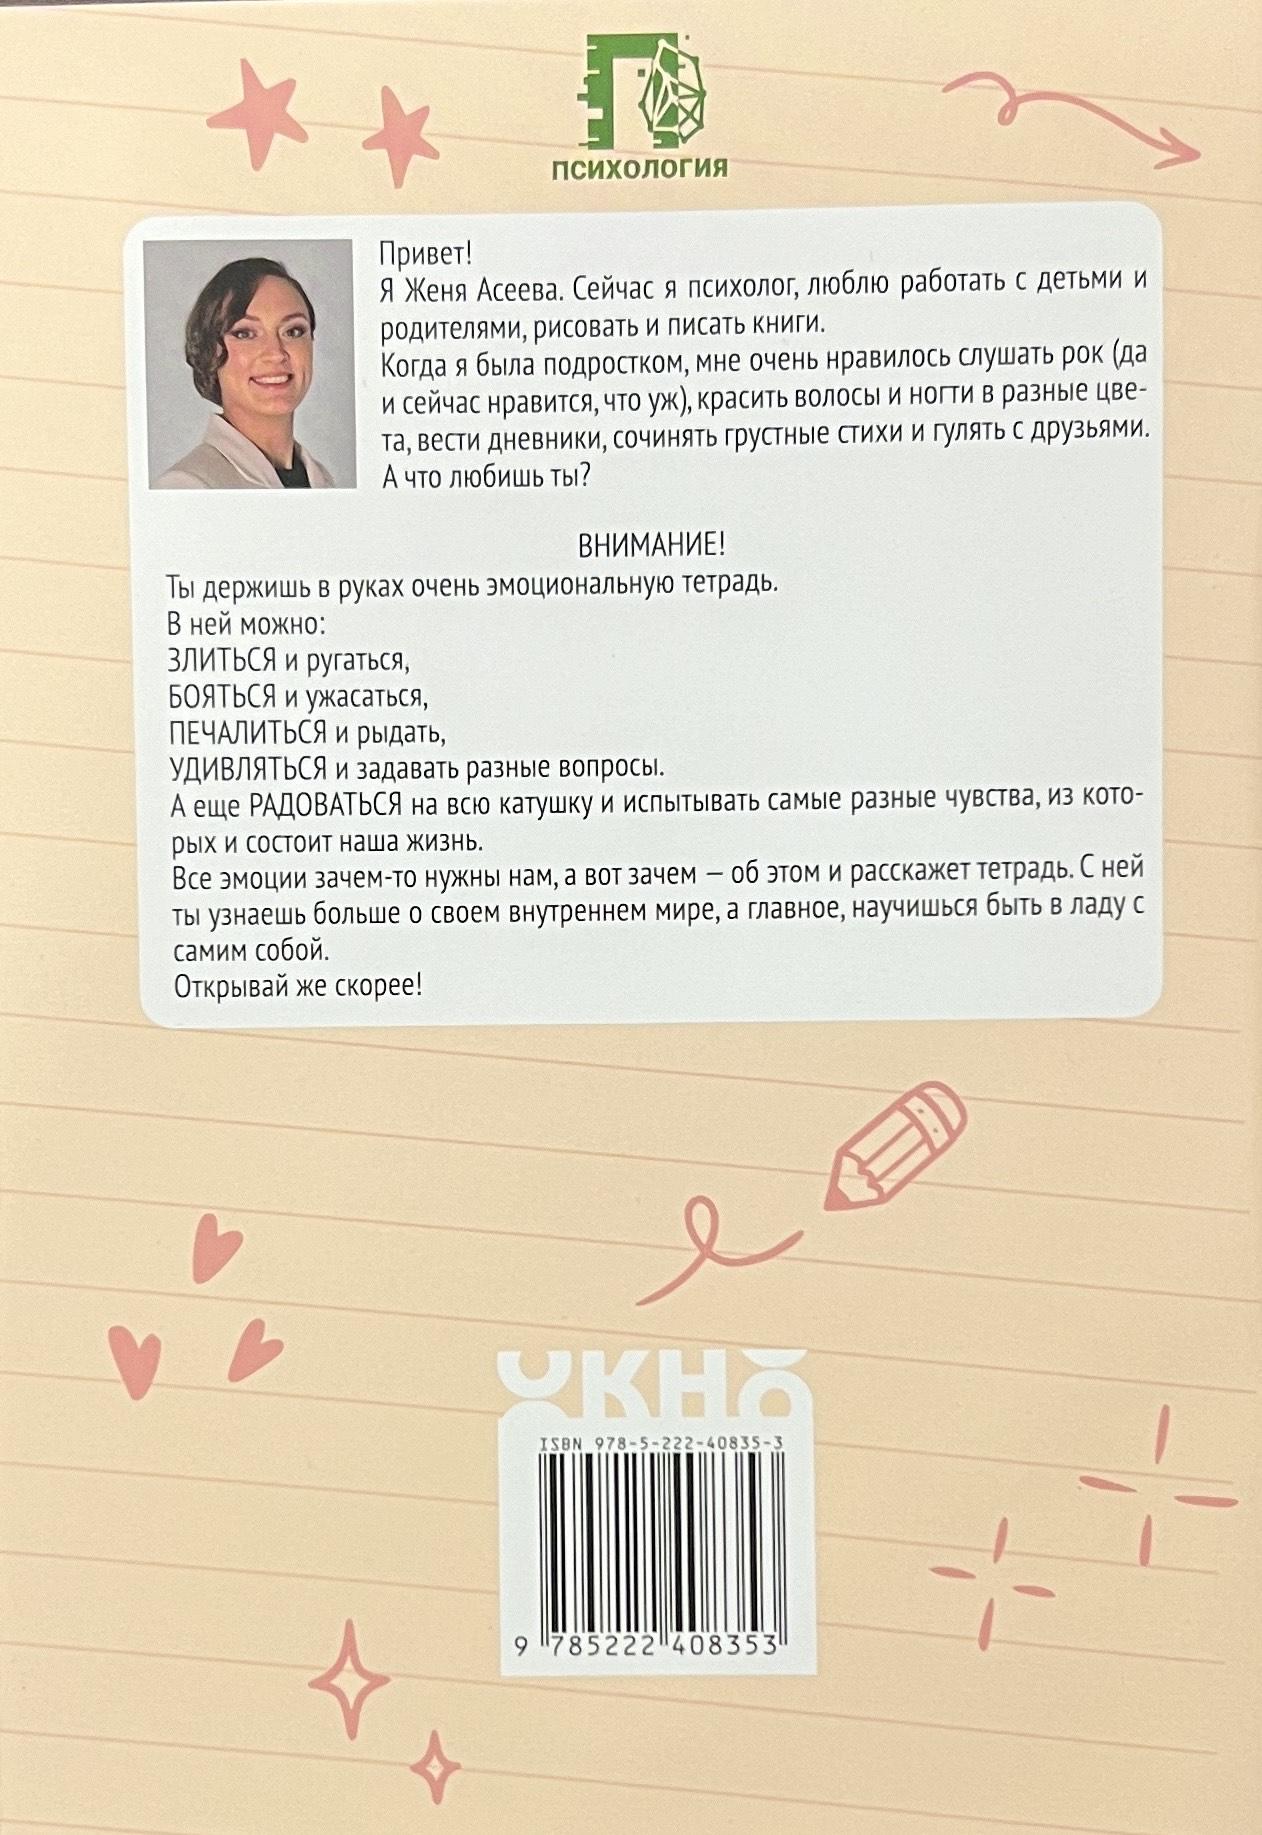 ПСИХОЛОГИЯ
Привет!
Я Женя Асеева. Сейчас я психолог, люблю работать с детьми и
родителями, рисовать и писать книги.
Когда я была подростком, мне очень нравилось слушать рок (да
и сейчас нравится, что уж), красить волосы и ногти в разные цве-
та, вести дневники, сочинять грустные стихи и гулять с друзьями.
А что любишь ты?
ВНИМАНИЕ!
Ты держишь в руках очень эмоциональную тетрадь.
В ней можно:
ЗЛИТЬСЯ и ругаться,
БОЯТЬСЯ и ужасаться,
ПЕЧАЛИТЬСЯ и рыдать,
УДИВЛЯТЬСЯ и задавать разные вопросы.
А еще РАДОВАТЬСЯ на всю катушку и испытывать самые разные чувства, из кото-
рых и состоит наша жизнь.
Все эмоции зачем-то нужны нам, а вот зачем — об этом и расскажет тетрадь. С ней
ты узнаешь больше о своем внутреннем мире, а главное, научишься быть в ладу с
самим собой.
Открывай же скорее!
ОКНО
ISBN 978-5-222-40835-3
9 785222 408353